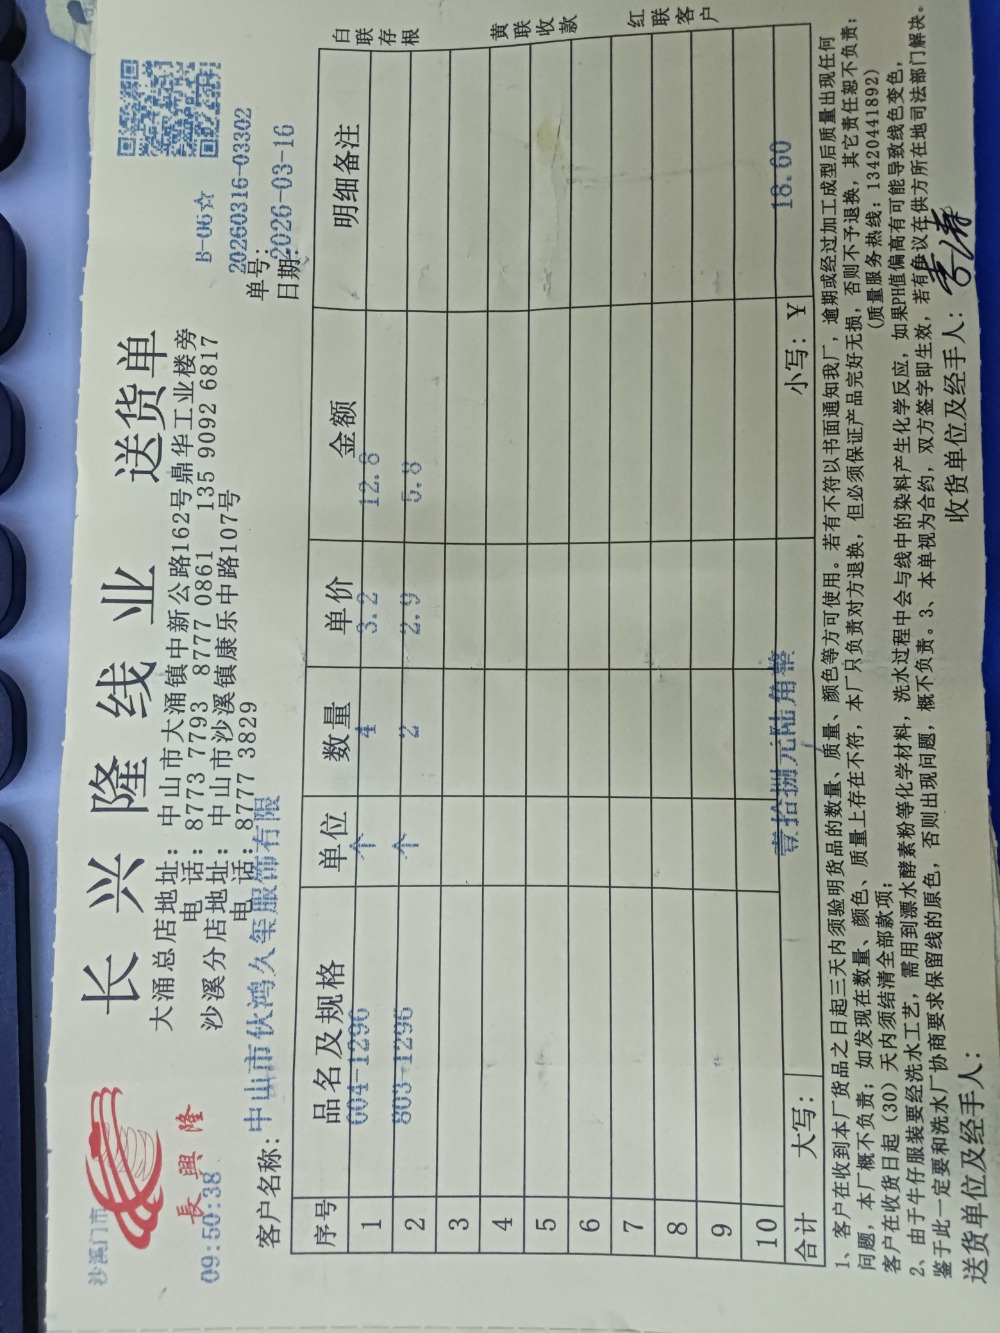 沙溪门市
長興隆
09:50:38
长兴隆线业 送货单
大涌总店地址: 中山市大涌镇中新公路162号鼎华工业楼旁
电 话: 8773 7793 8777 0861 135 9092 6817
沙溪分店地址: 中山市沙溪镇康乐中路107号
电 话: 8777 3829
B-06☆
单号: 20260316-03302
日期: 2026-03-16
客户名称: 中山市伙鸿久玺服饰有限
序号 品名及规格 单位 数量 单价 金额 明细备注
1 604-1296 个 4 3.2 12.8
2 803-1296 个 2 2.9 5.8
3
4
5
6
7
8
9
10
合计 大写: 壹拾捌元陆角整 小写: ¥ 18.60
白联存根 黄联收款 红联客户
1、客户在收到本厂货品之日起三天内须验明货品的数量、质量、颜色等方可使用。若有不符以书面通知我厂，逾期或经过加工成型后质量出现任何
问题，本厂概不负责；如发现在数量、颜色、质量上存在不符，本厂只负责对方退换，但必须保证产品完好无损，否则不予退换，其它责任恕不负责；
客户在收货日起（30）天内须结清全部款项； (质量服务热线: 13420441892)
2、由于牛仔服装要经洗水工艺，需用到漂水酵素粉等化学材料，洗水过程中会与线中的染料产生化学反应，如果PH值偏高有可能导致线色变色，
鉴于此一定要和洗水厂协商要求保留线的原色，否则出现问题，概不负责。3、本单视为合约，双方签字即生效，若有争议在供方所在地司法部门解决。
送货单位及经手人: 收货单位及经手人: